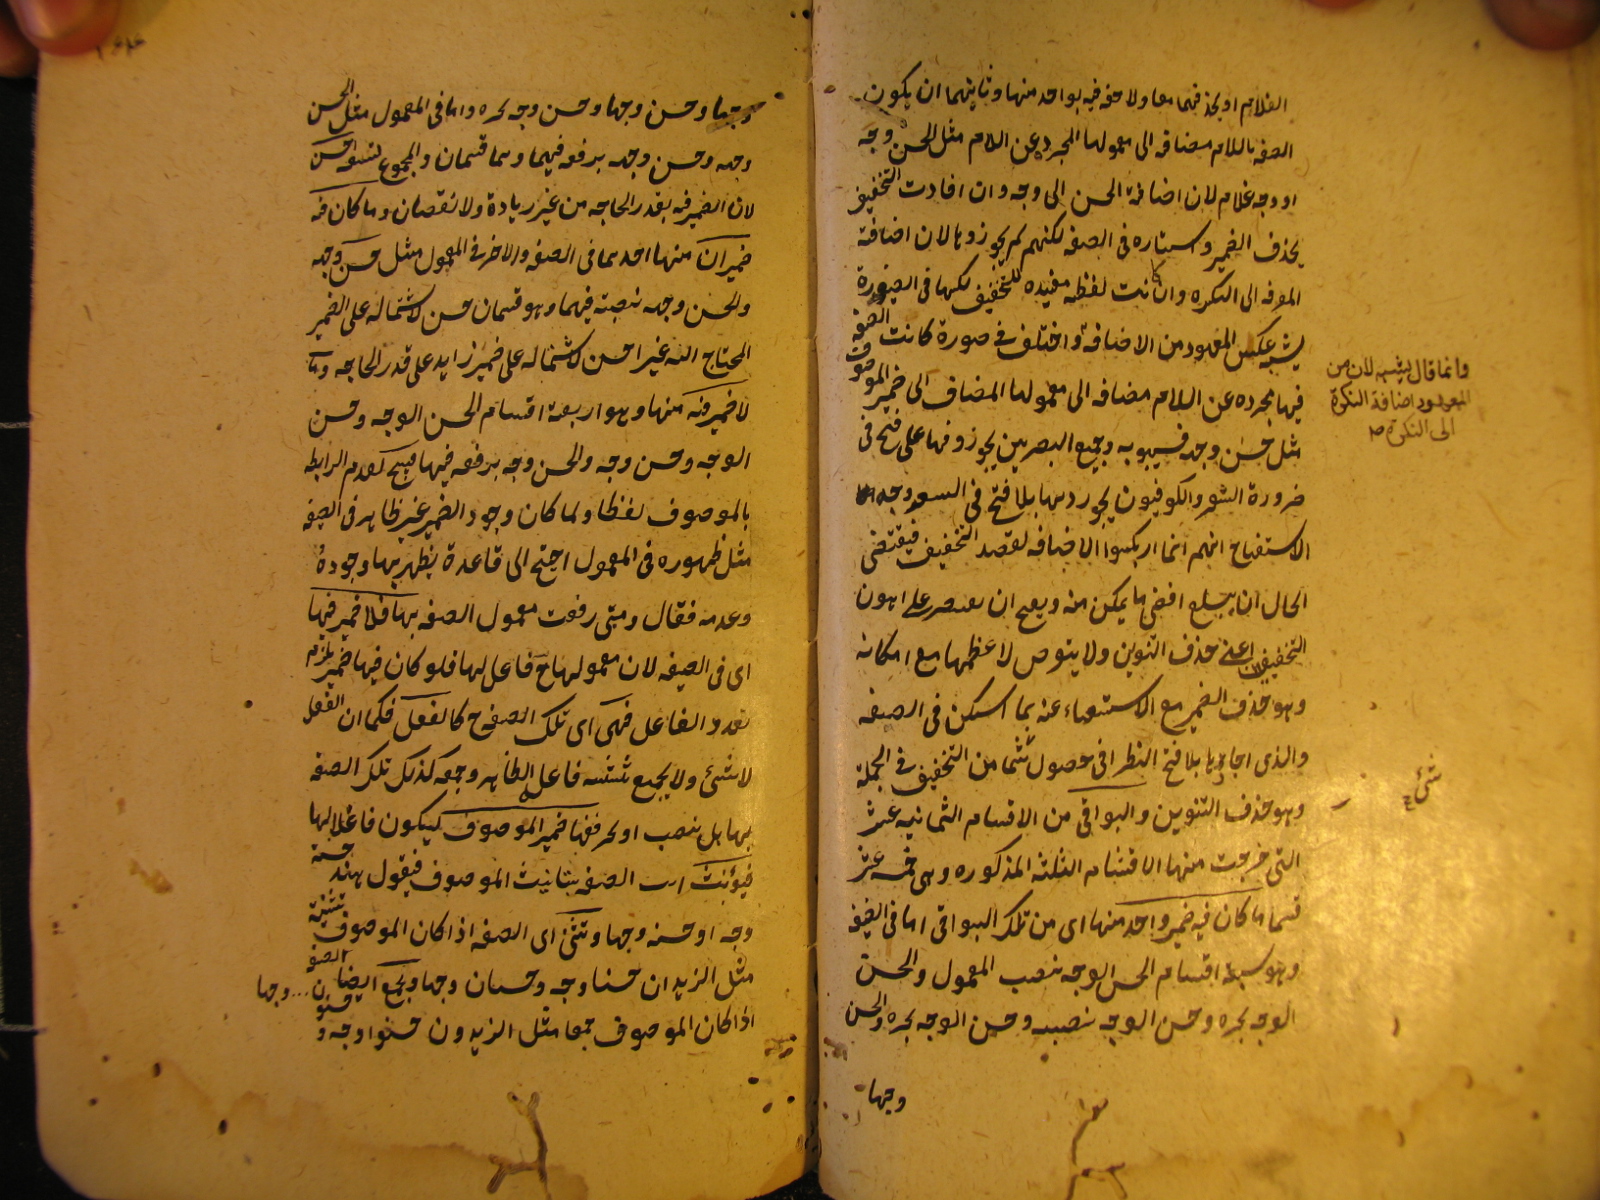 الغلام او بحذفهما معا ولا خفة فيه بواحد منها وثانيهما ان يكون
الصفه باللام مضافه الى معمولها المجرد عن اللام مثل الحسن وجه
او وجه غلام لان اضافة الحسن الى وجه وان افادت التخفيف
بحذف الضمير واستتاره فى الصفه لكنهم لم يجوزوها لان اضافة
المعرفه الى النكره وان كانت لفظيه مفيده للتخفيف لكنها فى الصورة
يشبه عكس المعهود من الاضافة واختلف فى صورة كانت الصفه
فيها مجرده عن اللام مضافه الى معمولها المضاف الى ضمير الموصوف
مثل حسن وجهه فسيبويه وجميع البصريين يجوزونها على قبح فى
ضرورة الشعر والكوفيون يجوزونها بلا قبح فى السعه وجه
الاستقباح انهم انما ارتكبوا الاضافه لقصد التخفيف فيقتضى
الحال ان يبلغ اقصى ما يمكن منه ويقبح ان يقتصر على اهون
التخفيفين اعنى حذف التنوين ولا يتعرض لاعظمها مع امكانه
وهو حذف الضمير مع الاستغناء عنه بما استكن فى الصفه
والذى اجازها بلا قبح النظر الى حصول شئ ما من التخفيف فى الجملة
وهو حذف التنوين والبواقى من الاقسام الثمانيه عشر
التى خرجت منها الاقسام الثلثة المذكوره وهى خمسه عشر
قسما ما كان فيه ضمير واحد منها اى من تلك البواقى اما فى الصفه
وهو سبعة اقسام الحسن الوجه بنصب المعمول والحسن
الوجه بجره وحسن الوجه بنصبه وحسن الوجه بجره والحسن
وجها
وانما قال يشبه لان من
المعهود اضافة النكرة
الى النكرة
شئ
وجها وحسن وجها وحسن وجه بجره واما فى المعمول مثل الحسن
وجهه وحسن وجهه برفعه فيهما وهما قسمان والمجموع تسعه احسن
لان الضمير فيه بقدر الحاجه من غير زيادة ولا نقصان وما كان فيه
ضميران منها احدهما فى الصفه والاخر فى المعمول مثل حسن وجهه
والحسن وجهه بنصبه فيهما وهو قسمان حسن لاشتماله على الضمير
المحتاج اليه غير احسن لاشتماله على ضمير زايد على قدر الحاجه وما
لا ضمير فيه منها وهو اربعة اقسام الحسن الوجه وحسن
الوجه وحسن وجه والحسن وجه برفعه فيها قبيح لعدم الرابطه
بالموصوف لفظا ولما كان وجود الضمير غير ظاهر فى الصفه
مثل ظهوره فى المعمول احتج الى قاعدة يظهر بها وجوده
وعدمه فقال ومتى رفعت معمول الصفه بها فلا ضمير فيها
اى فى الصفه لان معمولها ح فاعل لها فلو كان فيها ضمير يلزم
تعدد الفاعل فهى اى تلك الصفه ح كالفعل فكما ان الفعل
لا يثنى ولا يجمع بتثنيه فاعل الظاهر وجمعه كذلك تلك الصفه
بها بل بنصب او بجر ففيها ضمير الموصوف ليكون فاعلا لها
فيؤنث اى الصفه بتانيث الموصوف فيقول هند حسنة
وجه او حسنه وجها وتثنى اى الصفه اذا كان الموصوف تثنية
مثل الزيدان حسنا وجه وحسنان وجها ويجمع ايضا الصفه
اذا كان الموصوف جمعا مثل الزيدون حسنوا وجه و
حسنون وجها